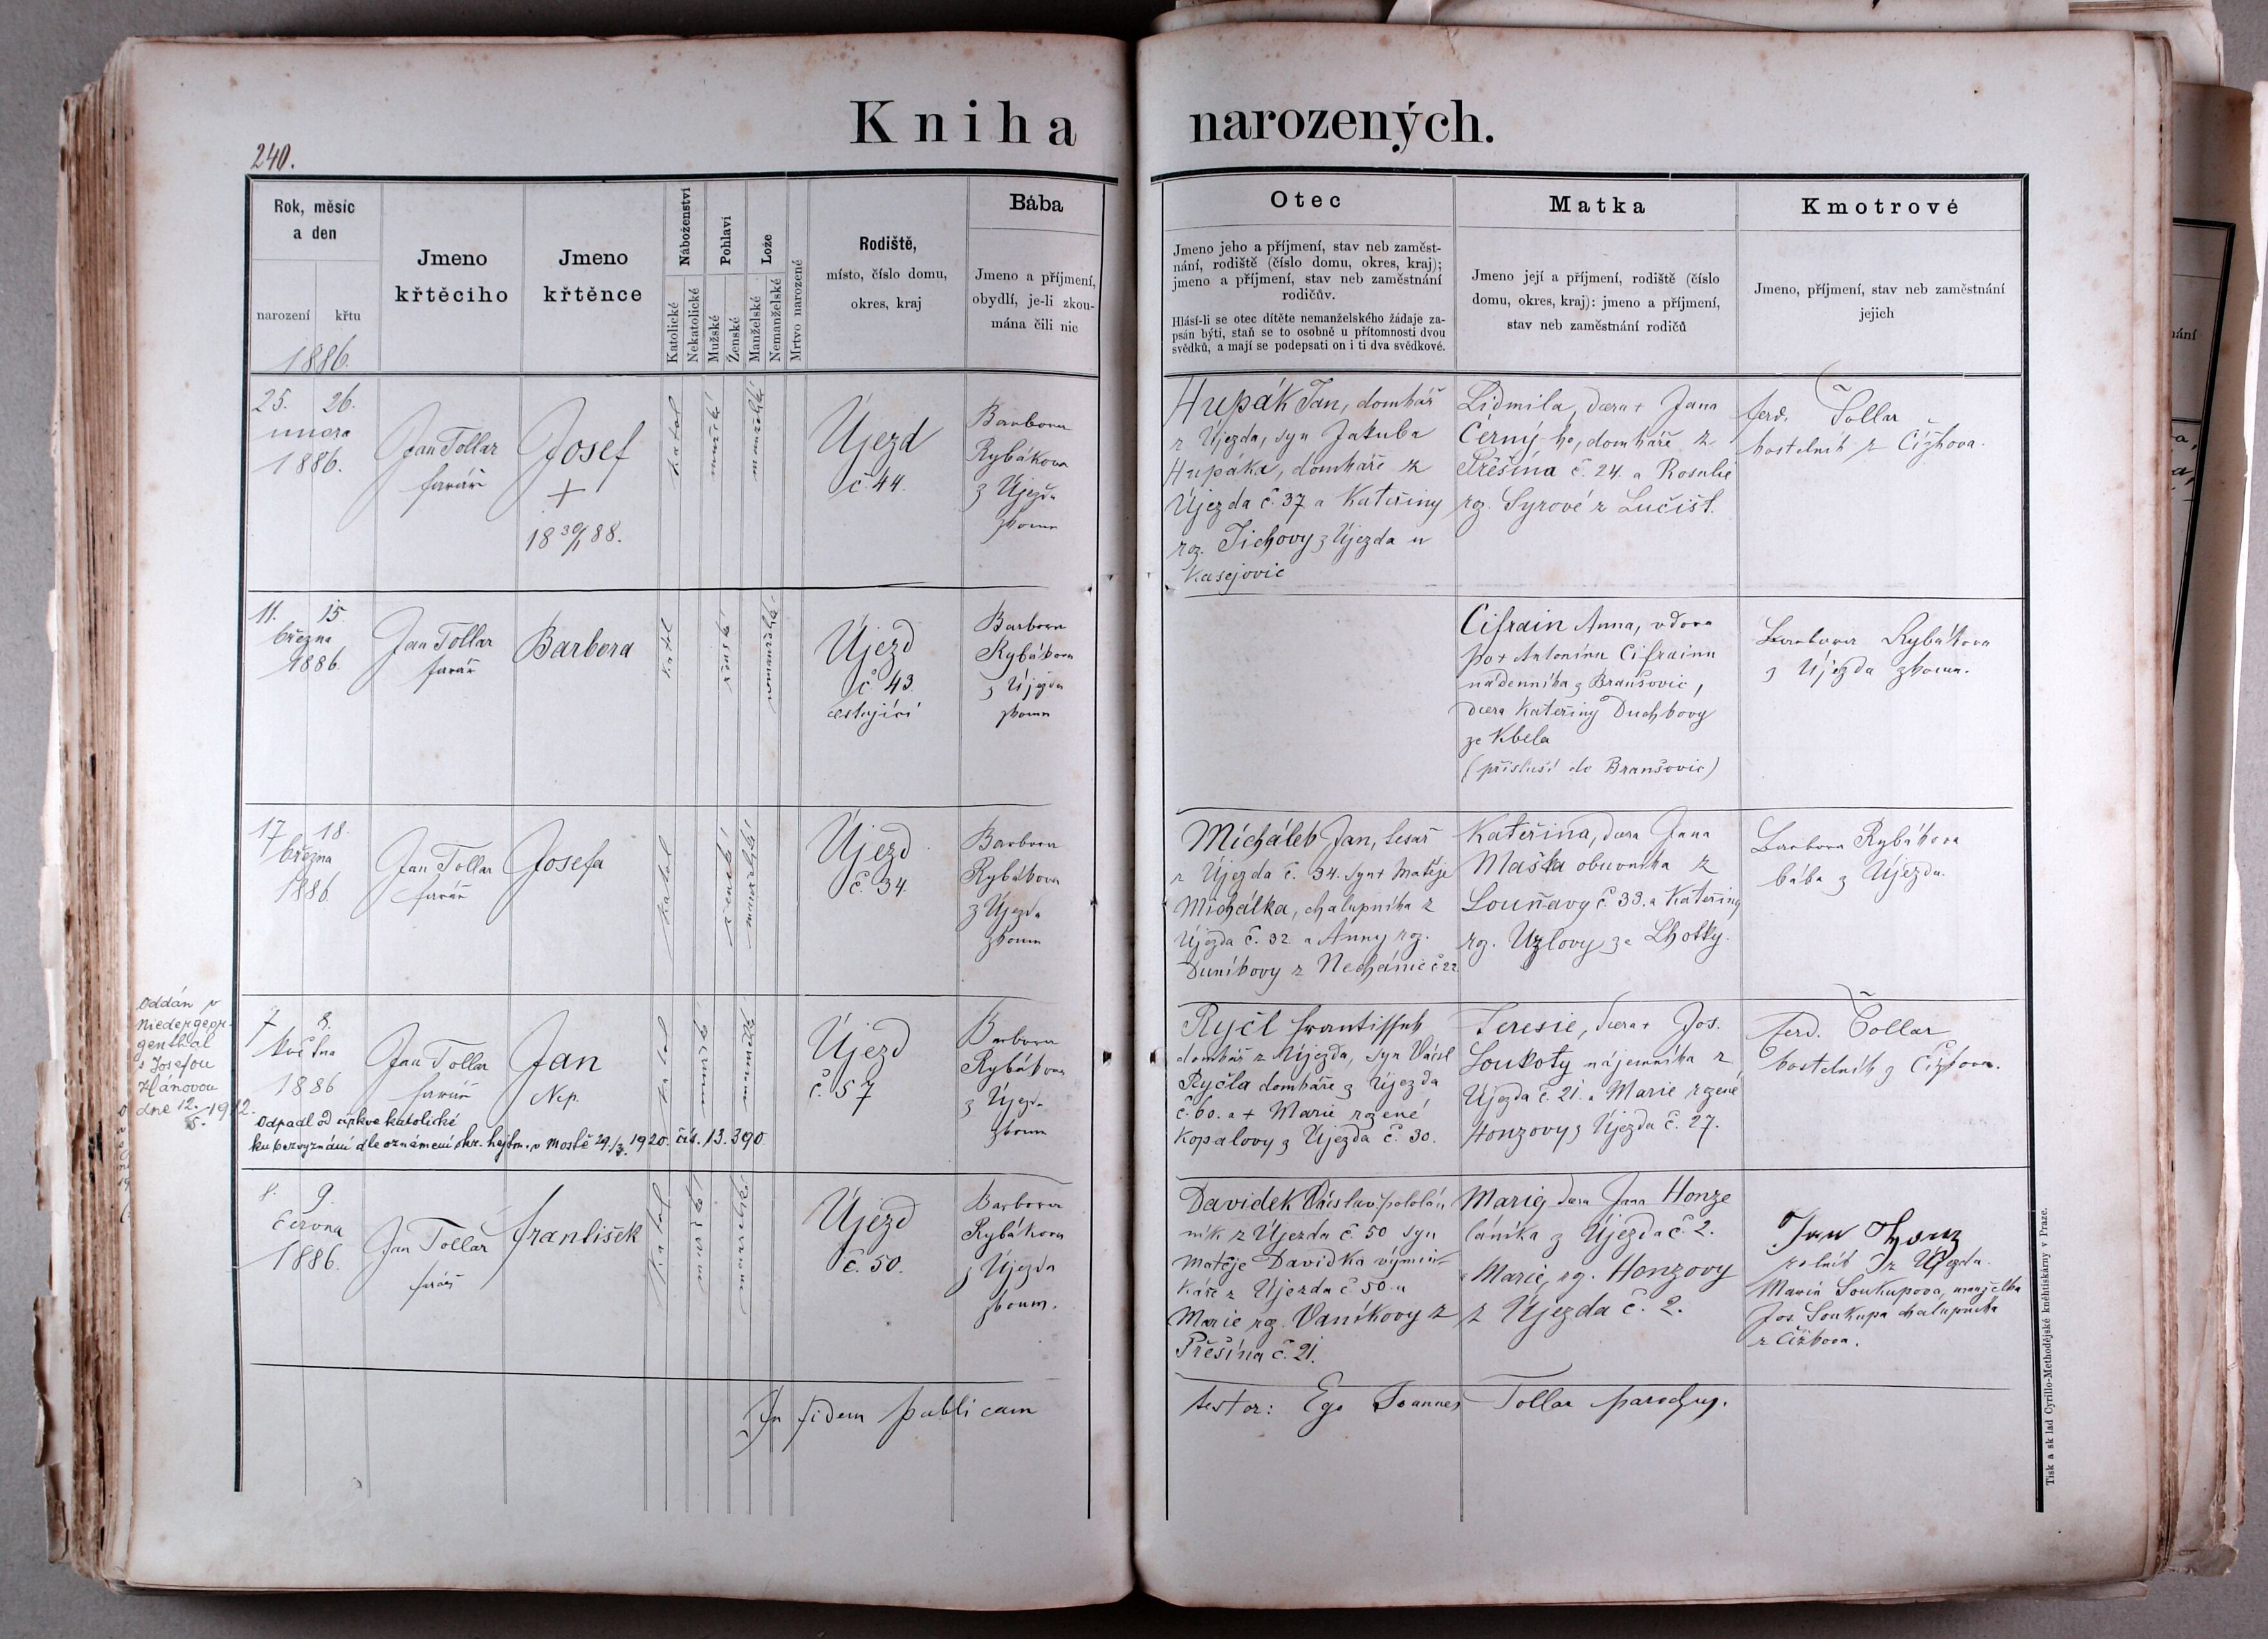 Kniha narozených.
240.
Rok, měsíc
a den
narození křtu
1886.
Jmeno
křtěcího
Jmeno
křtěnce
Náboženství
Katolické
Nekatolické
Pohlaví
Mužské
Ženské
Lože
Manželské
Nemanželské
Mrtvo narozené
Rodiště,
místo, číslo domu,
okres, kraj
Bába
Jmeno a příjmení,
obydlí, je-li zkou-
mána čili nic
Otec
Jmeno jeho a příjmení, stav neb zaměst-
nání, rodiště (číslo domu, okres, kraj);
jmeno a příjmení, stav neb zaměstnání
rodičův.
Hlásí-li se otec dítěte nemanželského žádaje za-
psán býti, staň se to osobně u přítomnosti dvou
svědků, a mají se podepsati on i ti dva svědkové.
Matka
Jmeno její a příjmení, rodiště (číslo
domu, okres, kraj): jmeno a příjmení,
stav neb zaměstnání rodičů
Kmotrové
Jmeno, příjmení, stav neb zaměstnání
jejich
25. 26.
února
1886.
Jan Tollar
farář
Josef
+
18 30/1 88.
katol
mužské
manželské
Újezd
č. 44.
Barbora
Rybákova
z Újezda
zkoum
Hupák Jan, domkář
z Újezda, syn Jakuba
Hupáka, domkáře z
Újezda č. 37 a Kateřiny
roz. Tichovy z Újezda u
Kasejovic
Lidmila, dcera + Jana
Černý ho, domkáře z
Přešína č. 24. a Rosalie
rz. Syrové z Lučišt.
Ferd. Tollar
kostelník z Čížkova.
11. 15.
března
1886.
Jan Tollar
farář
Barbora
katol
ženské
nemanželské
Újezd
č. 43.
cestující
Barbora
Rybákova
z Újezda
zkoum
Cifrain Anna, vdova
po + Antonínu Cifrainu
nádenníka z Branšovic,
dcera Kateřiny Duchkovy
ze Kbela
(přísluší do Branšovic)
Barbora Rybákova
z Újezda zkoum.
17 18.
března
1886.
Jan Tollar
farář
Josefa
katol
ženské
manželské
Újezd
č. 34.
Barbora
Rybákova
z Újezda
zkoum
Michálek Jan, tesař
z Újezda č. 34. syn + Matěje
Michálka, chalupníka z
Újezda č. 32 a Anny rz.
Duníkovy z Nechánic č 22
Kateřina, dcera Jana
Maška obuvníka z
Louňavy č. 33. a Kateřiny
rz. Uzlovy ze Lhotky.
Barbora Rybákova
bába z Újezda.
Oddán v
Niedergeor-
genthal
s Josefou
Hánovou
dne 12./5. 1912.
7 8.
května
1886
Jan Tollar
farář
Jan
Nep.
katol
mužské
manželské
Újezd
č. 57
Barbora
Rybákova
z Újezda
zkoum
Ryčl František
domkář z Újezda, syn Václ
Ryčla domkáře z Újezda
č. 60. a + Marie rzené
Kopalovy z Újezda č. 30.
Teresie, dcera + Jos.
Loukoty nájemníka z
Újezda č. 21. a Marie rzené
Honzovy z Újezda č. 27.
Ferd. Tollar
kostelník z Čížkova.
Odpadl od církve katolické
ku bezvyznání dle oznámení okr. hejtm. v Mostě 29./3. 1920. čís. 13.390
8. 9.
června
1886.
Jan Tollar
farář
František
katol
mužské
manželské
Újezd
č. 50.
Barbora
Rybákova
z Újezda
zkoum.
Davidek Václav, pololán
ník z Újezda č. 50 syn
Matěje Davidka výmin-
káře z Újezda č 50. a
Marie rz. Vaníkovy z
Přešína č. 21.
Marie, dcera Jana Honze
láníka z Újezda č. 2.
a Marie, rz. Honzovy
z Újezda č. 2.
Jan Honz
rolník z Újezda.
Marie Soukupova, manželka
Jos. Soukupa chalupníka
z Čížkova.
In fidem publicam testor: Ego Joannes Tollar parochus.
Tisk a sklad Cyrillo-Methodějské kněhtiskárny v Praze.